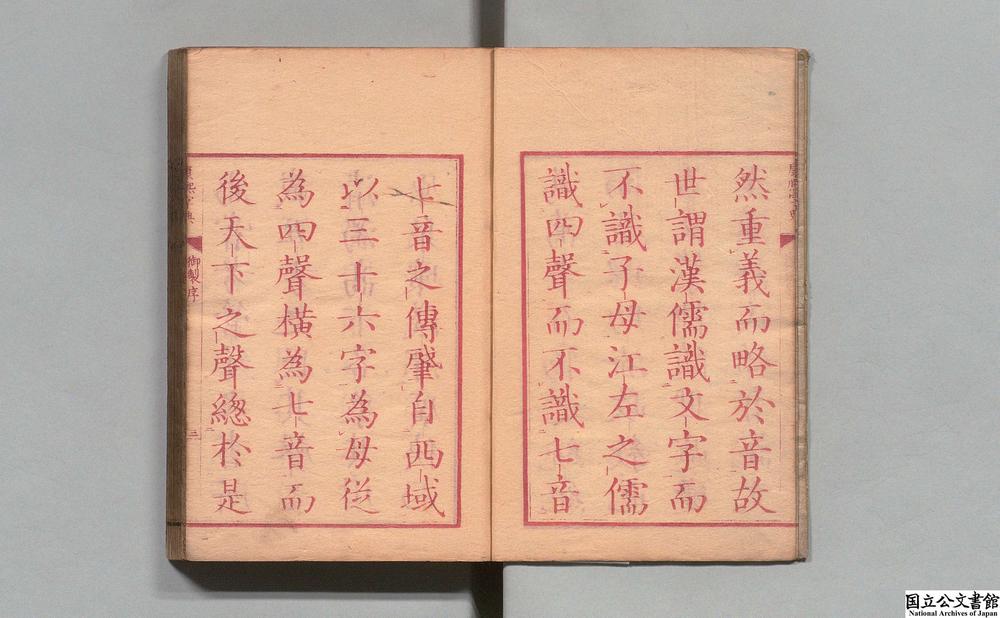 然重義而略於音故
世謂漢儒識文字而
不識子母江左之儒
識四聲而不識七音
七音之傳肇自西域
以三十六字為母從
為四聲橫為七音而
後天下之聲總於是
御製序
三
国立公文書館
National Archives of Japan